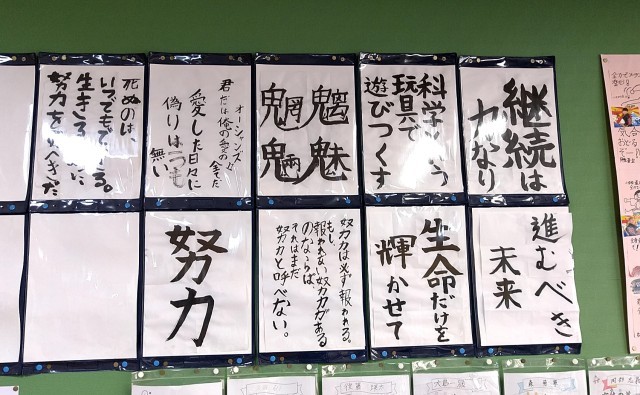 継続は
力なり
科学という
玩具で
遊びつくす
魑魅
魍魎
オーシャンズ
愛した日々に
偽りは一つも
無い
死ぬのは、
いつでもできる。
生きるために
努力をすべきだ
進むべき
未来
生命だけを
輝かせて
努力は必ず報われる。
もし、
報われない努力がある
のならば
それはまだ
努力と呼べない。
努力